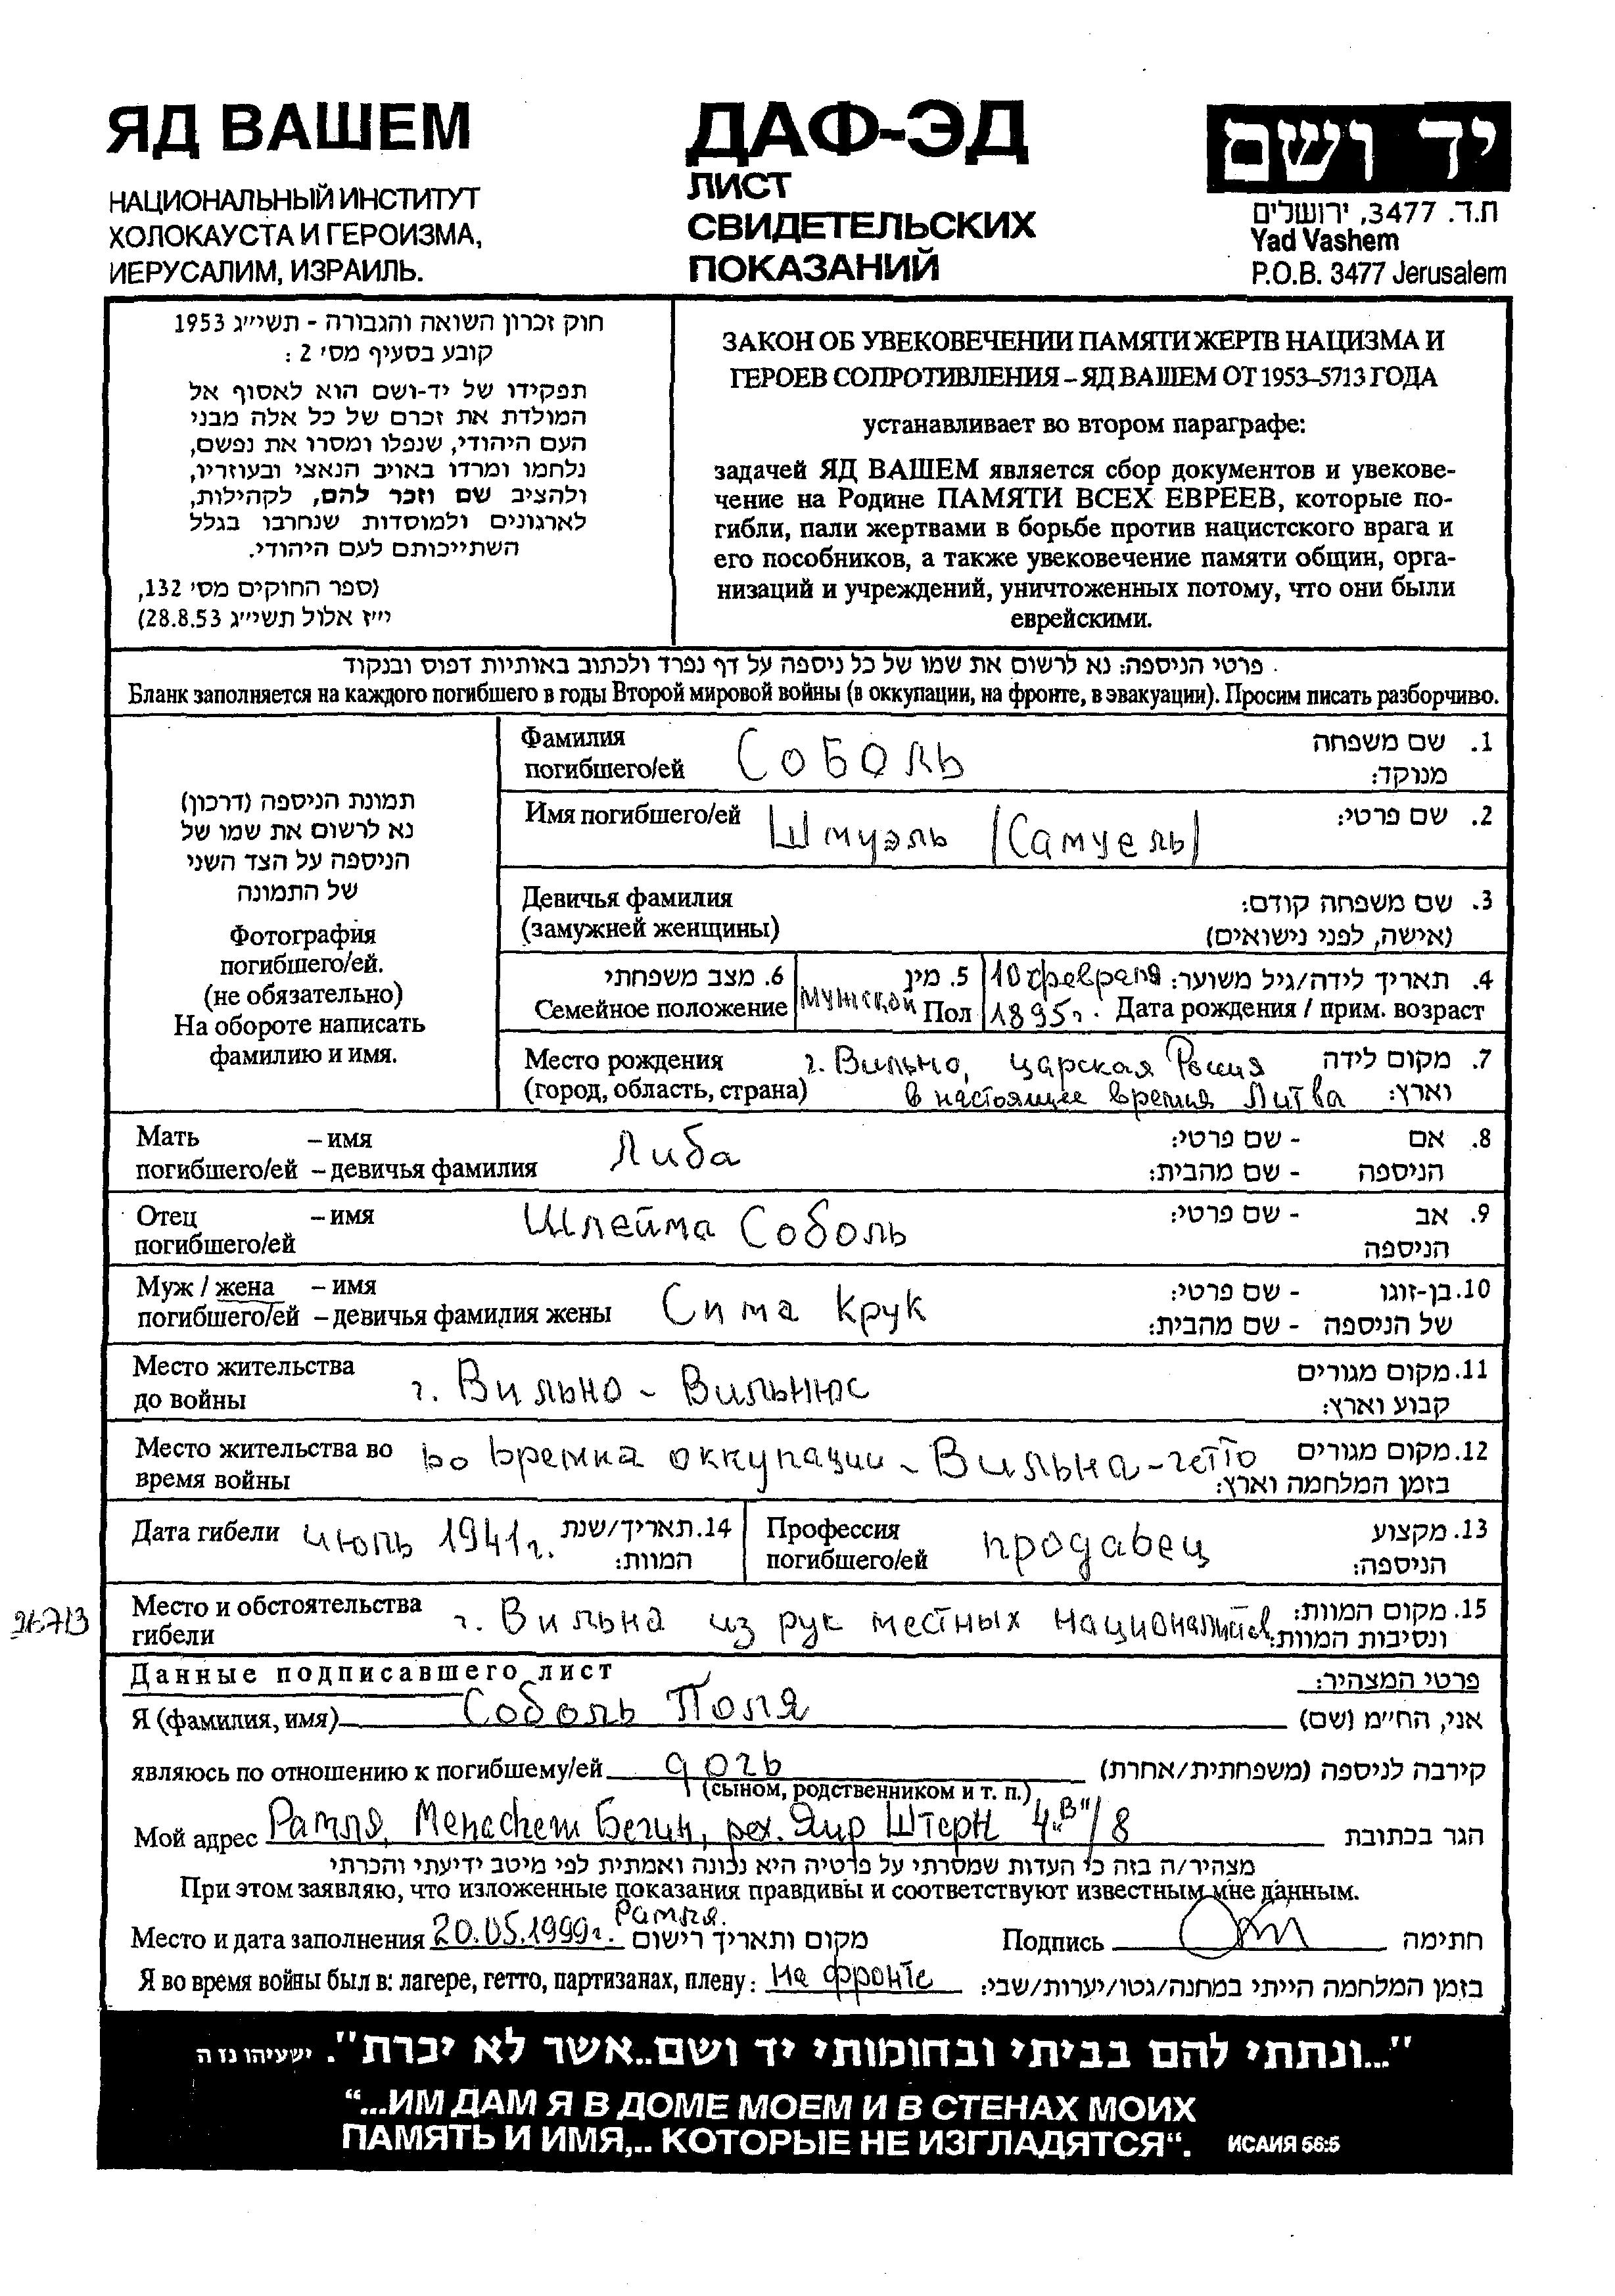 ЯД ВАШЕМ
НАЦИОНАЛЬНЫЙ ИНСТИТУТ
ХОЛОКАУСТА И ГЕРОИЗМА,
ИЕРУСАЛИМ, ИЗРАИЛЬ.
ДАФ-ЭД
ЛИСТ
СВИДЕТЕЛЬСКИХ
ПОКАЗАНИЙ
יד ושם
ת.ד. 3477, ירושלים
Yad Vashem
P.O.B. 3477 Jerusalem
חוק זכרון השואה והגבורה - תשי״ג 1953
קובע בסעיף מס׳ 2 :
תפקידו של יד-ושם הוא לאסוף אל
המולדת את זכרם של כל אלה מבני
העם היהודי, שנפלו ומסרו את נפשם,
נלחמו ומרדו באויב הנאצי ובעוזריו,
ולהציב שם וזכר להם, לקהילות,
לארגונים ולמוסדות שנחרבו בגלל
השתייכותם לעם היהודי.
(ספר החוקים מס׳ 132,
י״ז אלול תשי״ג 28.8.53)
ЗАКОН ОБ УВЕКОВЕЧЕНИИ ПАМЯТИ ЖЕРТВ НАЦИЗМА И
ГЕРОЕВ СОПРОТИВЛЕНИЯ – ЯД ВАШЕМ ОТ 1953–5713 ГОДА
устанавливает во втором параграфе:
задачей ЯД ВАШЕМ является сбор документов и увекове-
чение на Родине ПАМЯТИ ВСЕХ ЕВРЕЕВ, которые по-
гибли, пали жертвами в борьбе против нацистского врага и
его пособников, а также увековечение памяти общин, орга-
низаций и учреждений, уничтоженных потому, что они были
еврейскими.
פרטי הניספה: נא לרשום את שמו של כל ניספה על דף נפרד ולכתוב באותיות דפוס ובנקוד
Бланк заполняется на каждого погибшего в годы Второй мировой войны (в оккупации, на фронте, в эвакуации). Просим писать разборчиво.
תמונת הניספה (דרכון)
נא לרשום את שמו של
הניספה על הצד השני
של התמונה
Фотография
погибшего/ей.
(не обязательно)
На обороте написать
фамилию и имя.
Фамилия СОБОЛЬ 1. שם משפחה
погибшего/ей מנוקד:
Имя погибшего/ей Шмуэль /Самуель/ 2. שם פרטי:
Девичья фамилия 3. שם משפחה קודם:
(замужней женщины) (אישה, לפני נישואים)
6. מצב משפחתי 5. מין 10 февраля 4. תאריך לידה/גיל משוער:
Семейное положение мужской Пол 1895г. Дата рождения / прим. возраст
Место рождения г. Вильно, царская Россия 7. מקום לידה
(город, область, страна) в настоящее время Литва וארץ:
Мать – имя Либа 8. אם - שם פרטי:
погибшего/ей – девичья фамилия הניספה - שם מהבית:
Отец – имя Шлейма Соболь 9. אב - שם פרטי:
погибшего/ей הניספה
Муж / жена – имя Сима Крук 10. בן-זוגו - שם פרטי:
погибшего/ей – девичья фамилия жены של הניספה - שם מהבית:
Место жительства г. Вильно - Вильнюс 11. מקום מגורים
до войны קבוע וארץ:
Место жительства во во времна оккупации - Вильна - гетто 12. מקום מגורים
время войны בזמן המלחמה וארץ:
Дата гибели июль 1941г. 14. תאריך/שנת המוות:
Профессия продавец 13. מקצוע
погибшего/ей הניספה:
Место и обстоятельства г. Вильна из рук местных националистов 15. מקום המוות:
гибели ונסיבות המוות:
Данные подписавшего лист פרטי המצהיר:
Я (фамилия, имя) Соболь Поля אני, החי״מ (שם)
являюсь по отношению к погибшему/ей дочь קירבה לניספה (משפחתית/אחרת)
(сыном, родственником и т. п.)
Мой адрес Рамля, Менаchem Бегин, рех. Яир Штерн 4 "В" / 8 הגר בכתובת
מצהיר/ה בזה כי העדות שמסרתי על פרטיה היא נכונה ואמתית לפי מיטב ידיעתי והכרתי
При этом заявляю, что изложенные показания правдивы и соответствуют известным мне данным.
Рамля.
Место и дата заполнения 20.05.1999г. מקום ותאריך רישום Подпись חתימה
Я во время войны был в: лагере, гетто, партизанах, плену: на фронте בזמן המלחמה הייתי במחנה/גטו/יערות/שבי:
"...ונתתי להם בביתי ובחומותי יד ושם..אשר לא יכרת". ישעיהו נז ה
“...ИМ ДАМ Я В ДОМЕ МОЕМ И В СТЕНАХ МОИХ
ПАМЯТЬ И ИМЯ,.. КОТОРЫЕ НЕ ИЗГЛАДЯТСЯ“. ИСАИЯ 56:5